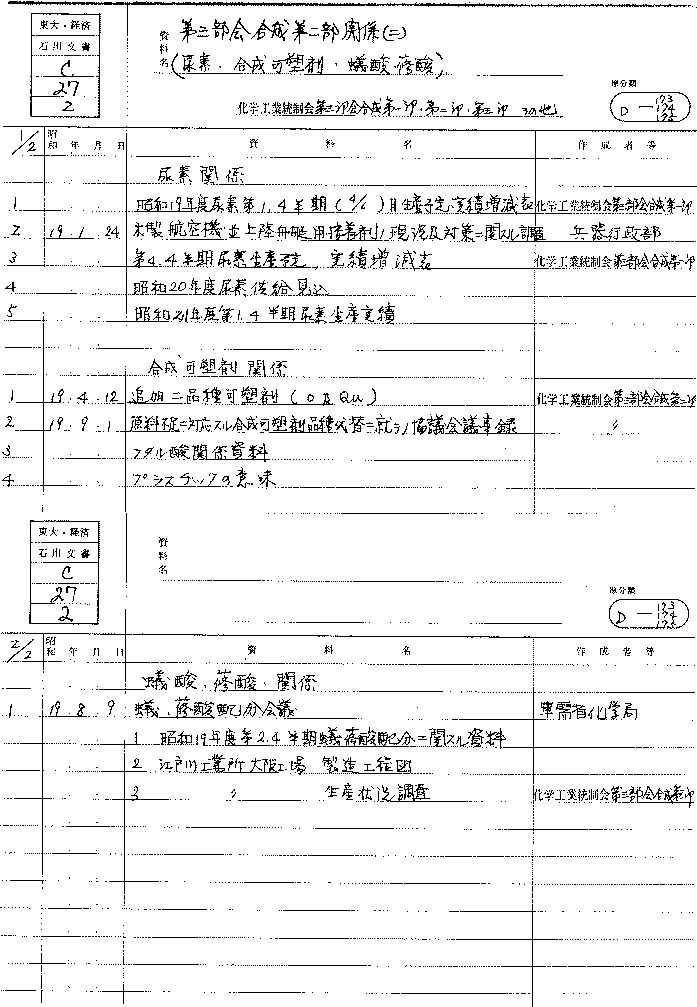 東大・経済
石川文書
C
27
2
資料名
第三部会合成第二部関係(二)
(尿素、合成可塑剤、蟻酸、蓚酸)
化学工業統制会第三部会合成第一部・第二部・第三部 その他
原分類
D
173
174
1/2
昭和 年 月 日
資 料 名
作 成 者 等
尿素関係
1 昭和19年度尿素第1.4半期( )月生産予定実績増減表 化学工業統制会第三部会合成第一部
2 19.1.24 木製航空機並上陸舟艇用接着剤ノ現況及対策ニ関スル調査 兵器行政部
3 第4.4半期尿素生産予定、実績増減表 化学工業統制会第三部会合成第一部
4 昭和20年度尿素供給見込
5 昭和21年度第1.4半期尿素生産実績
合成可塑剤関係
1 19.4.12 追加二品種可塑剤(O及Qu) 化学工業統制会第三部会合成第二部
2 19.9.1 原料不足ニ対応スル合成可塑剤品種代替ニ就テノ協議会議事録 〃
3 フタル酸関係資料
4 プラスチックの意味
東大・経済
石川文書
C
27
2
資料名
原分類
D
173
174
2/2
昭和 年 月 日
資 料 名
作 成 者 等
蟻酸、蓚酸、関係
1 19.8.9 蟻、蓚酸配分会議 軍需省化学局
1 昭和19年度第2.4半期蟻蓚酸配分ニ関スル資料
2 江戸川工業所大阪工場 製造工程図
3 〃 生産状況調査 化学工業統制会第三部会合成第一部